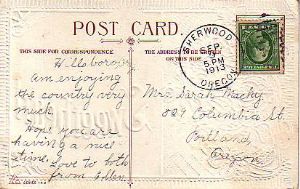 POST CARD.
THIS SIDE FOR CORRESPONDENCE
THE ADDRESS TO BE WRITTEN ON THIS SIDE
SHERWOOD
SEP
5 PM
1913
OREGON
Am enjoying
the country very
much.
Hope you are
having a nice
time. Love to both
from
Mrs.
Columbia St.
Portland,
Oregon